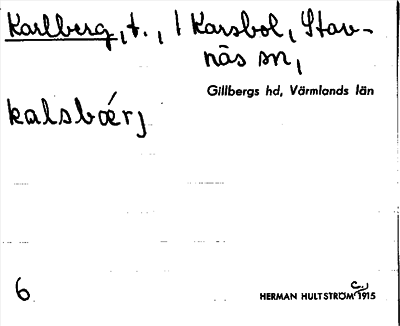 Karlberg, t., / Karsbol, Stav-
näs sn,
Gillbergs hd, Värmlands län
kalsbǽrj
6
HERMAN HULTSTRÖM 1915